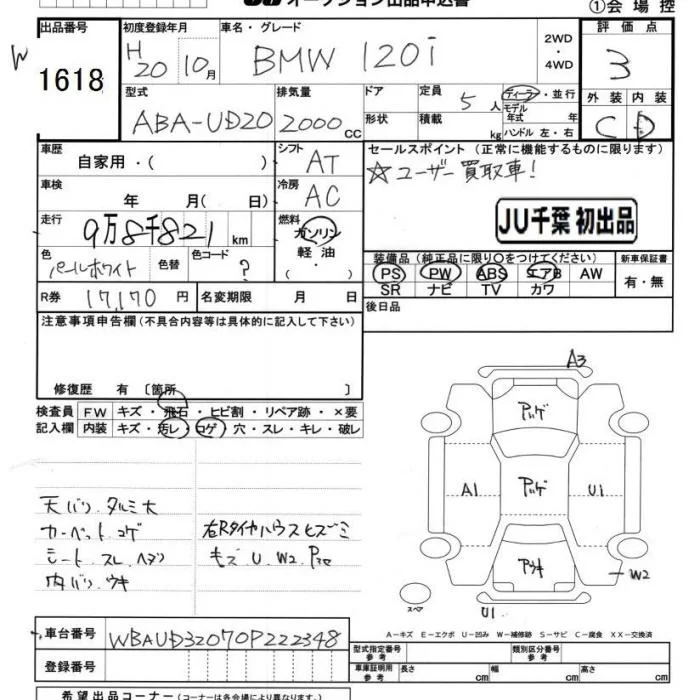 オークション出品申込書
①会場控
W
出品番号 初度登録年月 車名・グレード 2WD ・ 4WD 評価点
1618 H20 10月 BMW 120i 3
型式 排気量 ドア 定員 5人 ディーラー・並行 外装 内装
ABA-UD20 2000cc 形状 積載 kg モデル年式 年 C D
ハンドル 左・右
車歴 自家用・( ) シフト AT セールスポイント (正常に機能するものに限ります)
☆ユーザー買取車!
車検 年 月( 日) 冷房 AC
JU千葉 初出品
走行 9万8千821km 燃料 ガソリン 軽油
色 パールホワイト 色替 色コード ?
装備品 (純正品に限り○をつけてください) 新車保証書
PS PW ABS エアB AW 有・無
SR ナビ TV カワ
R券 17,170円 名変期限 月 日 後日品
注意事項申告欄 (不具合内容等は具体的に記入して下さい)
修復歴 有 〔箇所 〕
検査員 FW キズ・飛石・ヒビ割・リペア跡・×要
記入欄 内装 キズ・汚レ・コゲ・穴・スレ・キレ・破レ
A3
アッゲ
A1 アッゲ U1
アウキ
W2
スペア
U1
天バリ タルミ大
カーペット コゲ
シート スレ ヘタリ
内バリ ウキ
右Rタイヤハウス ヒズミ
キズ U W2
A-キズ E-エクボ U-凹み W-補修跡 S-サビ C-腐食 XX-交換済
車台番号 WBAUD32070P222348
登録番号
型式指定番号 参考 類別区分番号 参考
車庫証明用 参考 長さ cm 幅 cm 高さ cm
希望出品コーナー (コーナーは各会場により異なります。)